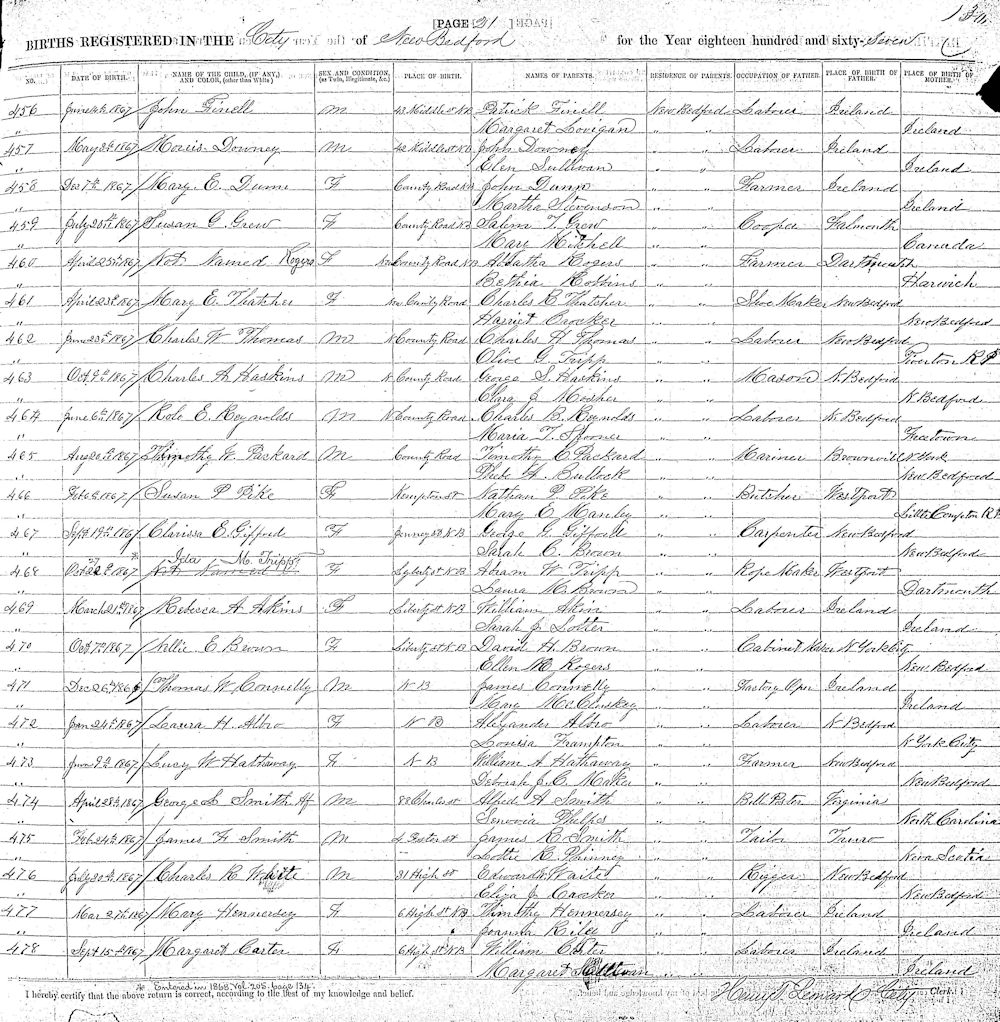 [PAGE 21]
BIRTHS REGISTERED IN THE City of New Bedford for the Year eighteen hundred and sixty-Seven
NO. DATE OF BIRTH. NAME OF THE CHILD, (IF ANY,) AND COLOR, (other than White) SEX AND CONDITION, (as Twin, Illegitimate, &c.) PLACE OF BIRTH. NAMES OF PARENTS. RESIDENCE OF PARENTS. OCCUPATION OF FATHER. PLACE OF BIRTH OF FATHER. PLACE OF BIRTH OF MOTHER.
456 June 14th 1867 John Finell M 43 Middle st N.B Patrick Finell New Bedford Laborer Ireland
" Margaret Lovigan " " Ireland
457 May 1867 Morris Downey M 42 Middle st N.B John Downey " " Laborer Ireland
" Elen Sullivan " " Ireland
458 Dec 7th 1867 Mary E. Dunn F County Road N.B John Dunn " " Farmer Ireland
" Martha Stevenson " " Ireland
459 July 20th 1867 Susan G. Grew F County Road N.B Salem T. Grew " " Cooper Falmouth
" Mary Mitchell " " Canada
460 April 25th 1867 Not Named Rogers F County Road N.B Rogers " " Farmer Dartmouth
" Bethia Robbins " " Harwich
461 April 23d 1867 Mary E. Thatcher F County Road Charles E. Thatcher " " Shoe Maker New Bedford
" Harriet Crocker " " New Bedford
462 June 23d 1867 Charles W Thomas M N County Road Charles H Thomas " " Laborer New Bedford
" Olive G. Tripp " " Tiverton R.I
463 Oct 9th 1867 Charles A Haskins M N County Road George S. Haskins " " Mason N. Bedford
" Clara J Mosher " " N Bedford
464 June 6th 1867 E. Reynolds M N County Road Charles B. Reynolds " " Laborer N. Bedford
" Maria T. Spooner " " Freetown
465 Aug 20th 1867 Timothy W. Packard M County Road Timothy C Packard " " Mariner Brownvill N York
" Phebe A Bullock " " New Bedford
466 Feb 8 1867 Susan P Pike F Kempton st Nathan P. Pike " " Butcher Westport
" Mary E Manley " " Little Compton R.I
467 Sept 19th 1867 Clarissa E. Gifford F Jenney st N.B George G. Gifford " " Carpenter New Bedford
" Sarah C. Brown " " New Bedford
* Ida M. Tripp
468 Oct 1867 Not Named F Liberty st N.B Adram W Tripp " " Rope Maker Westport
" Laura M. Brown " " Dartmouth
469 March 21st 1867 Rebeca A Akins F Liberty st N.B William Akin " " Laborer Ireland
" Sarah J Lotter " " Ireland
470 Oct 7th 1867 Nellie E Brown F Liberty st N.B David H. Brown " " Cabinet Maker N York City
" Ellen M Rogers " " New Bedford
471 Dec 26th 186 Thomas W Connelly M N B James Connelly " " Factory Oper Ireland
" Mary McCluskey " " Ireland
472 Jan 24th 1867 Laura H Albro F N B Alexander Albro " " Laborer N Bedford
" Louisa Frampton " " N York City
473 June 9th 1867 Lucy W Hathaway F N B William A Hathaway " " Farmer New Bedford
" Deborah J. C. Maker " " New Bedford
474 April 28th 1867 George L Smith Af M 88 Charles st Alfred A Smith " " Bill Poster Virginia
" Senovia Phelps " " North Carolina
475 Feb 24th 1867 James F. Smith M 4 Foster st James R Smith " " Tailor Truro
" Lottie E. Phinney " " Nova Scotia
476 July 20th 1867 Charles R Waite M 31 High st Edward Waite " " Rigger New Bedford
" Eliza J Casker " " New Bedford
477 Mar 27th 1867 Mary Hennersey F 6 High st N.B Timothy Hennersey " " Laborer Ireland
" Joanna Riley " " Ireland
478 Sept 15th 1867 Margaret Carter F 6 High st N.B William Carter " " Laborer Ireland
Margaret Sullivan " " Ireland
* Entered in 1868, Vol. 205, page 134.
I hereby certify that the above return is correct, according to the best of my knowledge and belief. Henry T. Leonard City Clerk.